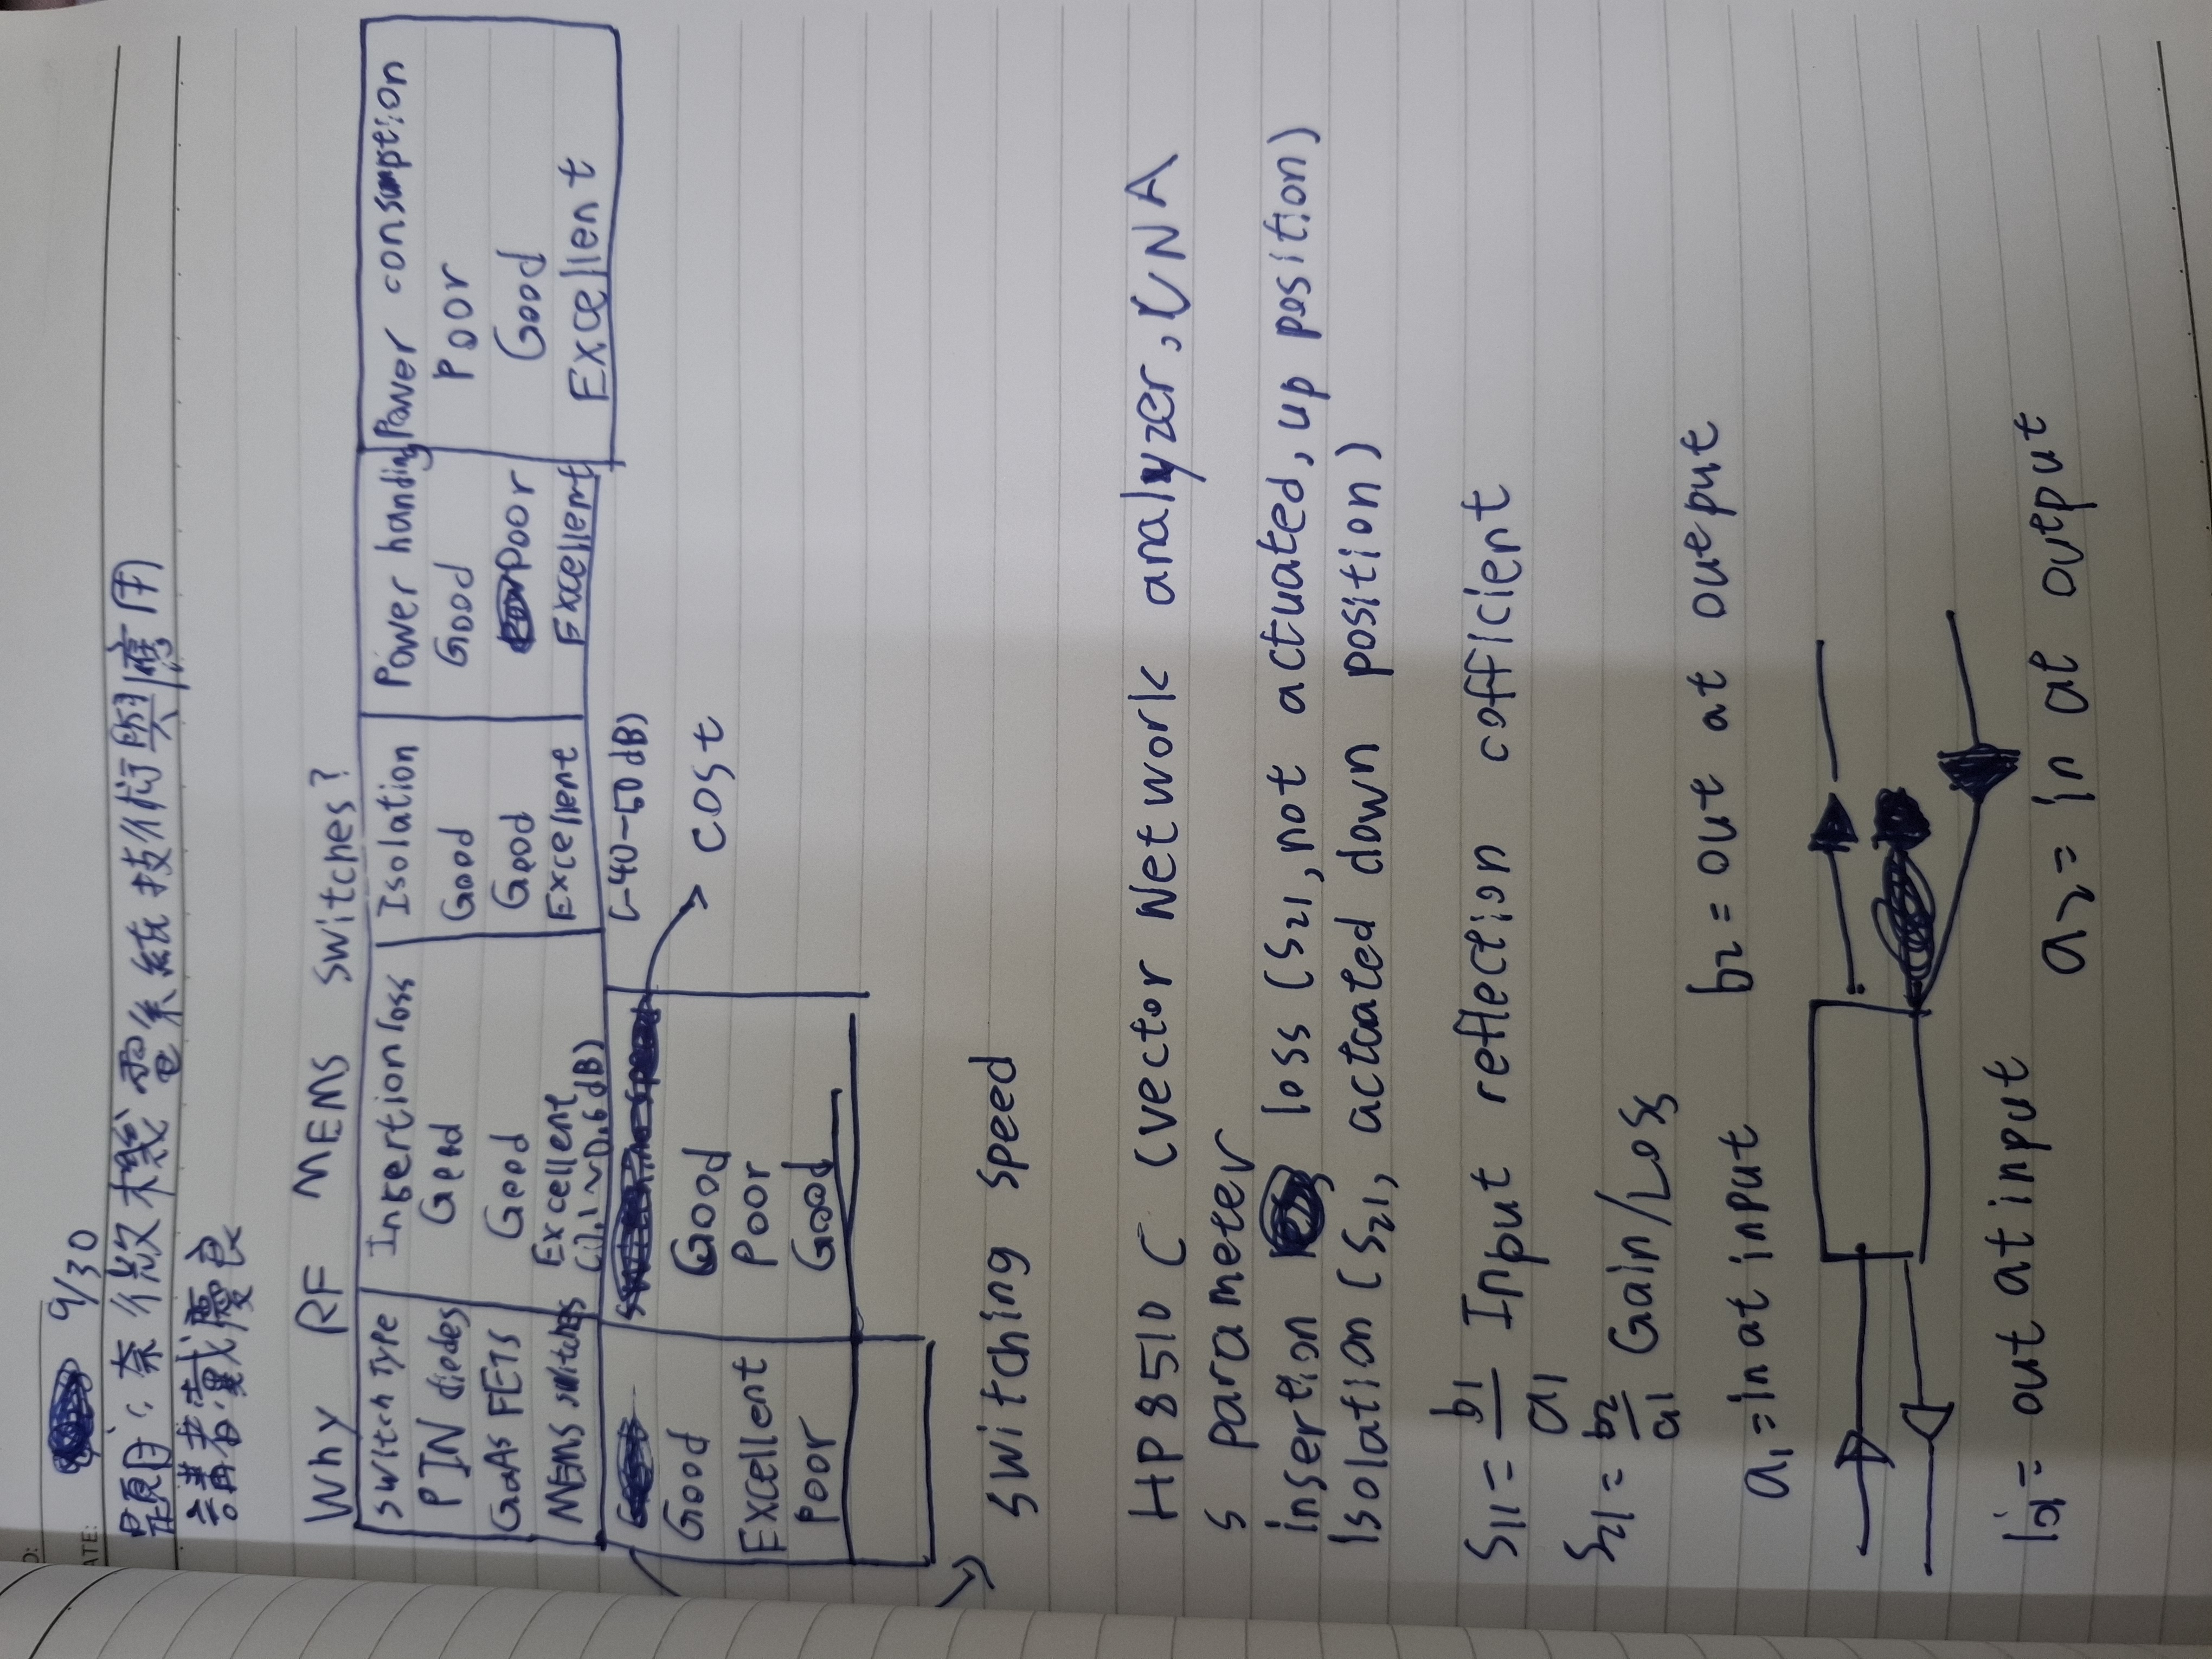 O:
ATE: 9/30
題目:奈微機電系統技術與應用
講者:戴慶良
Why RF MEMS switches?
switch Type Insertion loss Isolation Power handing Power consumption
PIN diodes Good Good Good Poor
GaAs FETS Good Good Poor Good
MEMS switches Excellent Excellent Excellent Excellent
(0.1~0.6dB)
(-40-50dB)
Good Good
cost
Excellent Poor
Poor Good
switching speed
HP8510 C (vector Network analyzer, VNA
S parameter
insertion loss (S21, not actuated, up position)
Isolation (S21, actuated down position)
S11 = b1/a1 Input reflection cofficient
S21 = b2/a1 Gain/Loss
b2 = out at output
a1 = in at input
b1 = out at input
a2 = in at output